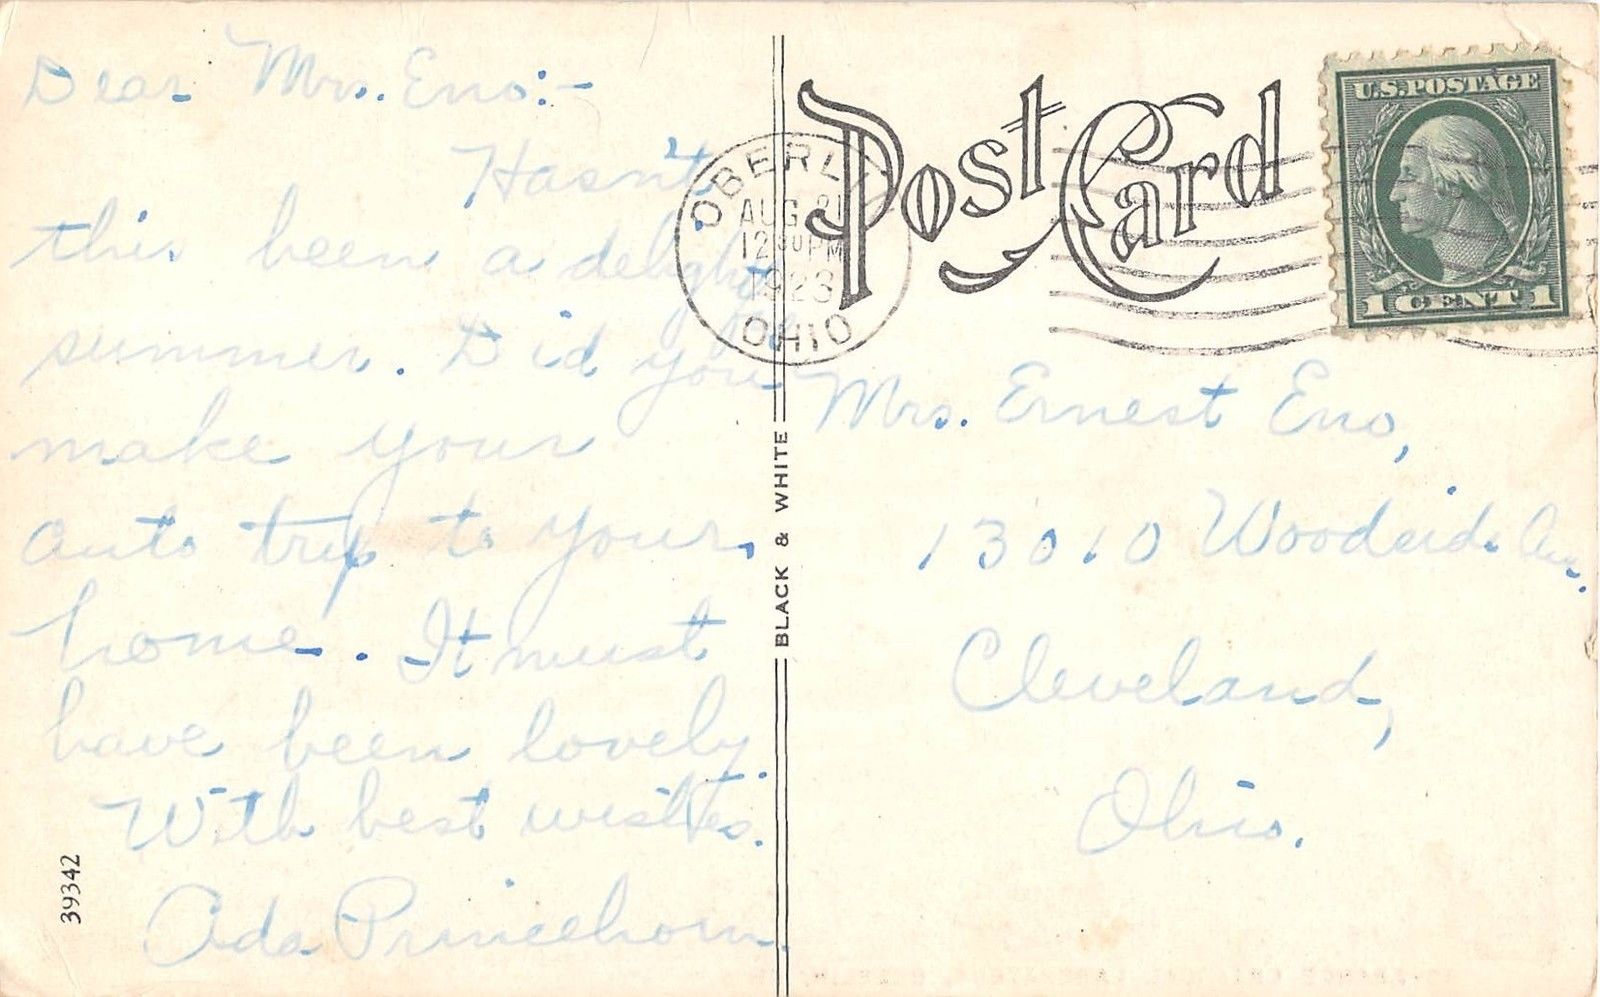 Dear Mrs. Eno:-
Hasn't
this been a delightful
summer. Did you
make your
auto trip to your
home. It must
have been lovely.
With best wishes.
Ada Princehorn.
39342
BLACK & WHITE
Post Card
OBERLIN
AUG 21
12 30 PM
1923
OHIO
U.S. POSTAGE
1 CENT 1
Mrs. Ernest Eno,
13010 Woodside Av.
Cleveland,
Ohio.